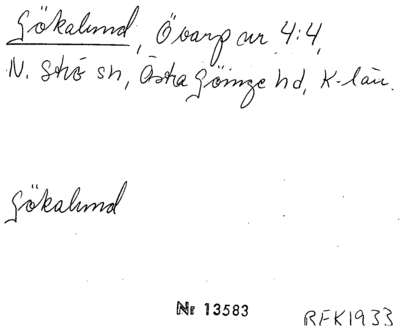 Gökalund, Övarp nr 4:4,
N. Strö sn, Östra Göinge hd, K-län.
Gökalund
Nr 13583
RFK1933